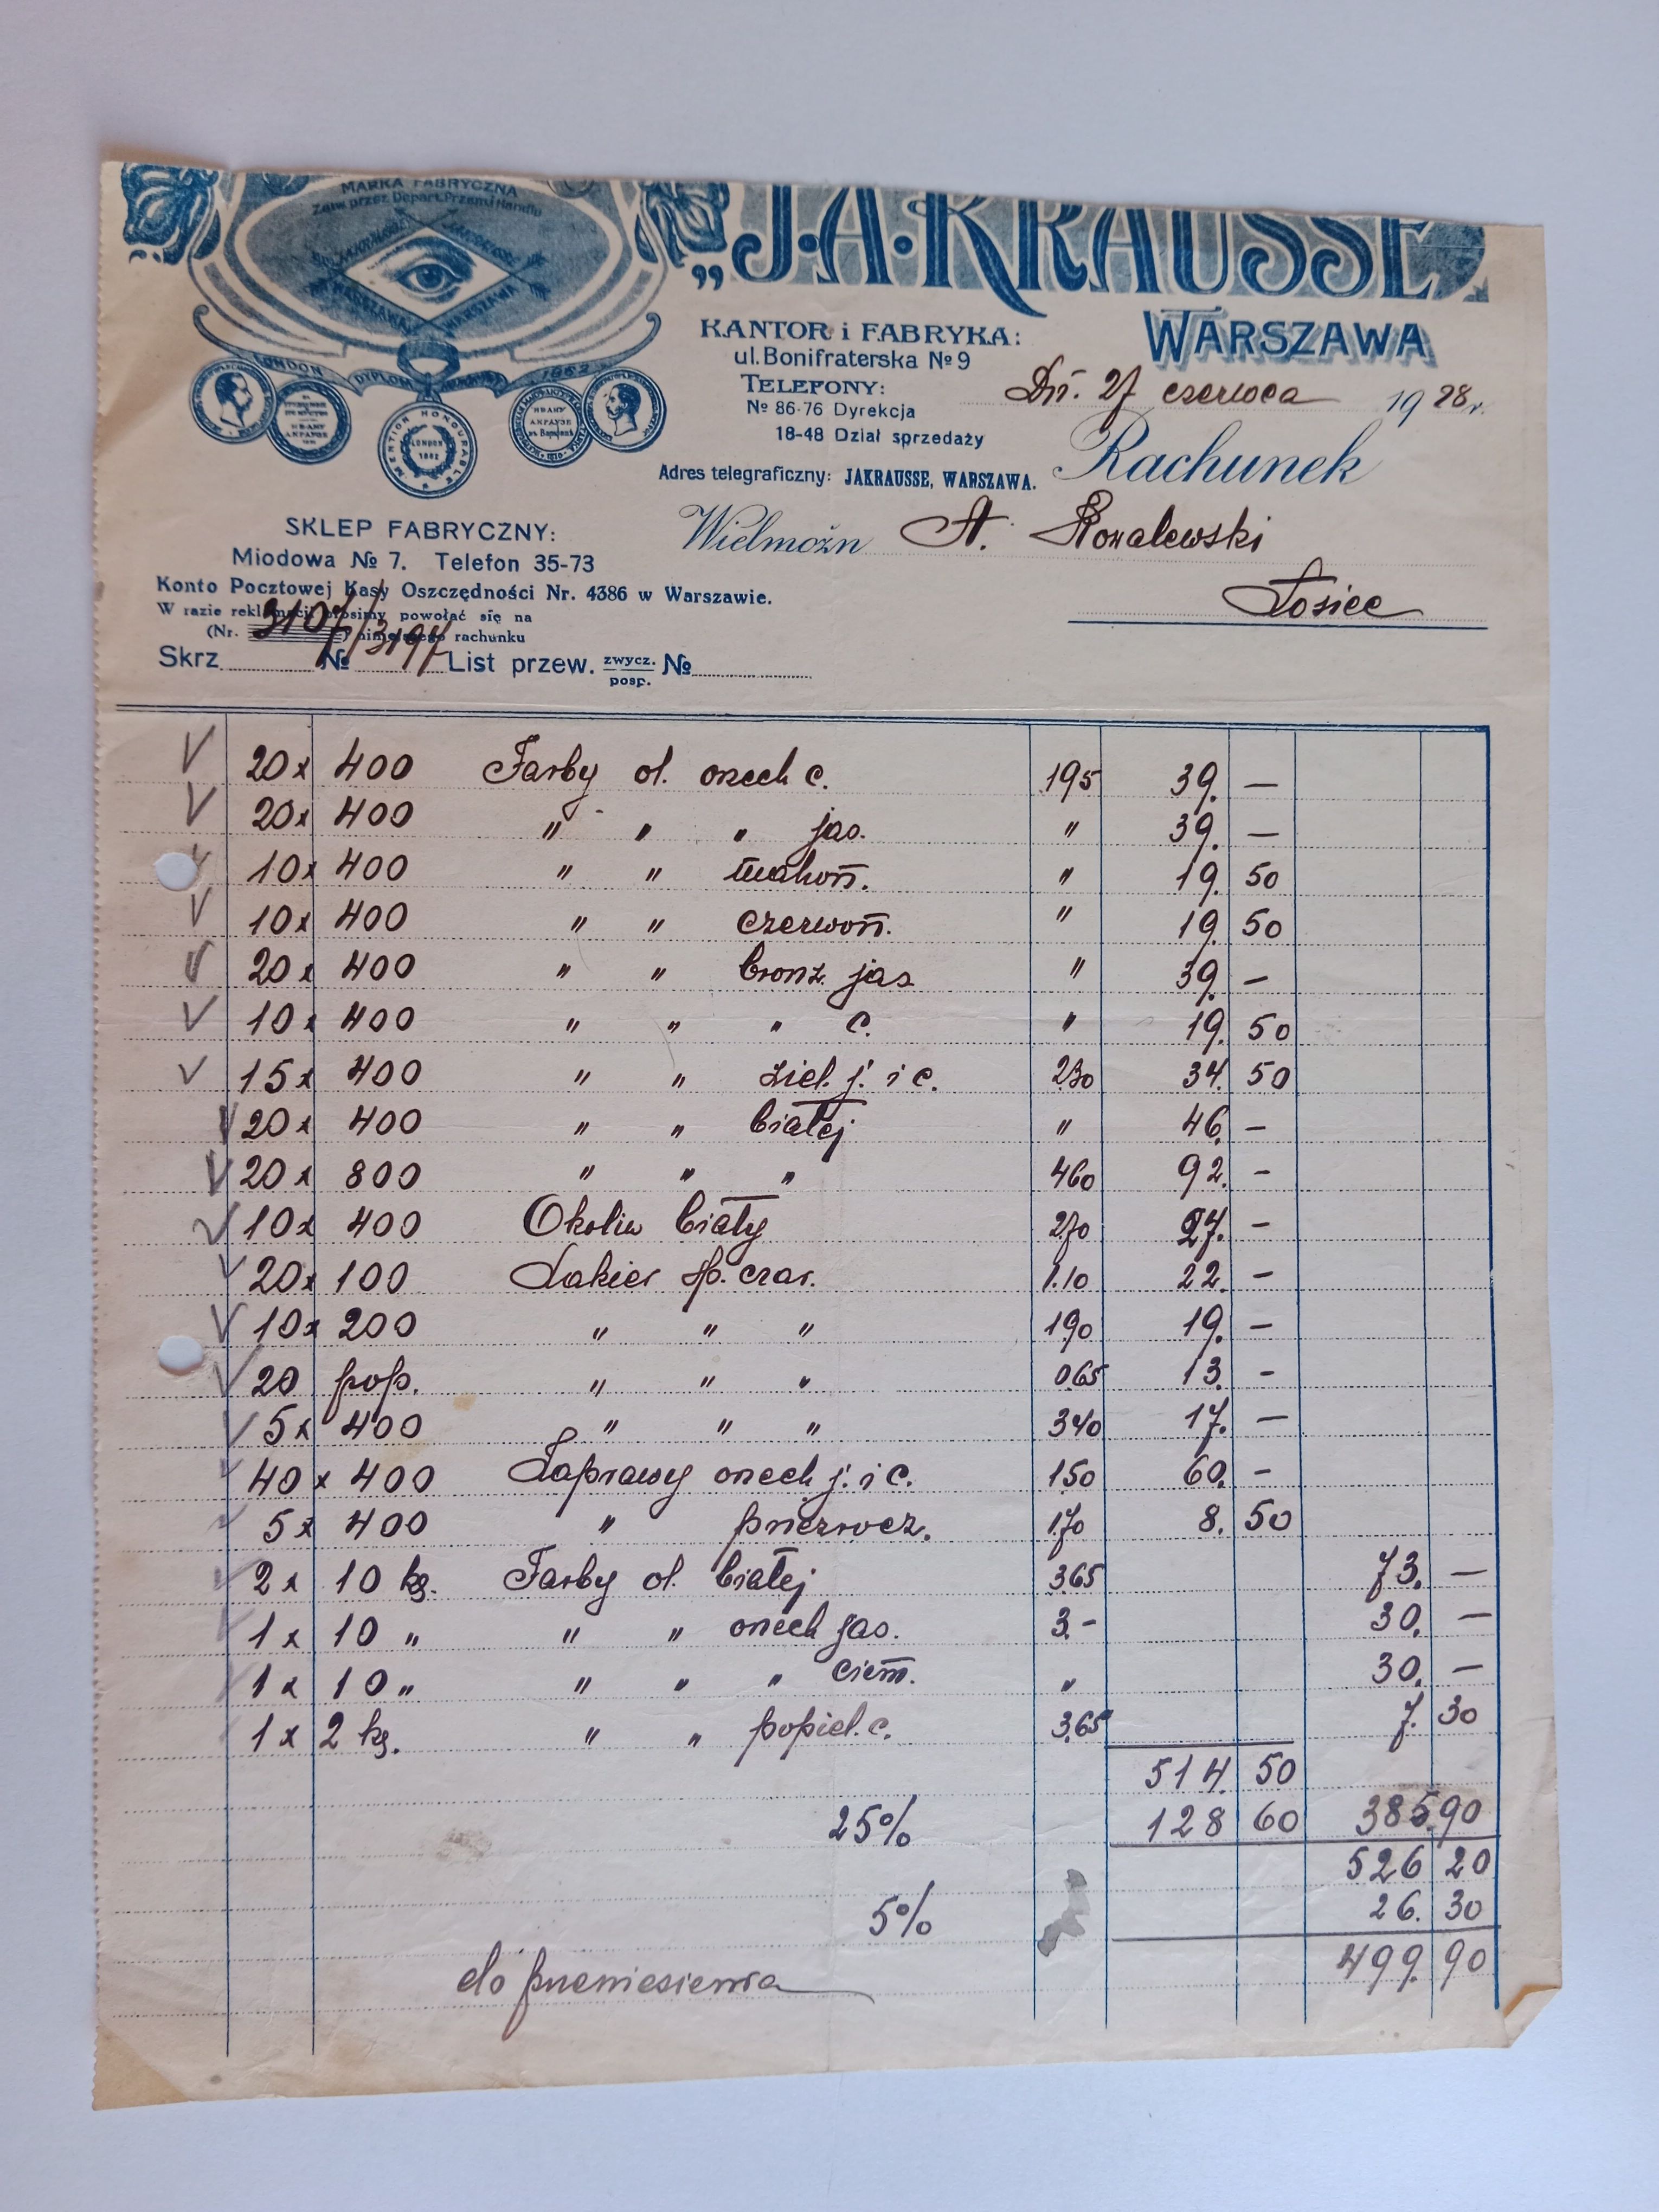 MARKA FABRYCZNA
Zatw. przez Depart. Przem. i Handlu
WARSZAWA WARSZAWA
LONDON DYPLOM 1862
MENTION HONOURABLE
LONDON
1862
„J.A.KRAUSSE
WARSZAWA
KANTOR i FABRYKA:
ul. Bonifraterska № 9
TELEFONY:
№ 86-76 Dyrekcja
18-48 Dział sprzedaży
Adres telegraficzny: JAKRAUSSE, WARSZAWA.
Dń. 27 czerwca 1928 r.
Rachunek
Wielmożn A. Kowalewski
Łosice
SKLEP FABRYCZNY:
Miodowa № 7. Telefon 35-73
Konto Pocztowej Kasy Oszczędności Nr. 4386 w Warszawie.
W razie reklamacji prosimy powołać się na
(Nr. 3107/3194) niniejszego rachunku
Skrz. № List przew. zwycz. posp. №
20 x 400 Farby ol. orzech c. 195 39. —
20 x 400 " " " jas. " 39. —
10 x 400 " " mahoń. " 19. 50
10 x 400 " " czerwoń. " 19. 50
20 x 400 " " bronz. jas. " 39. —
10 x 400 " " " c. " 19. 50
15 x 400 " " ziel. j. i c. 230 34. 50
20 x 400 " " białej " 46. —
20 x 800 " " " 460 92. —
10 x 400 Okolin biały 270 27. —
20 x 100 Lakier sp. czar. 1.10 22. —
10 x 200 " " " 190 19. —
20 pop. " " " 065 13. —
5 x 400 " " " 340 17. —
40 x 400 Zaprawy orzech j. i c. 150 60. —
5 x 400 " przezrocz. 170 8. 50
2 x 10 kg. Farby ol. białej 365 73. —
1 x 10 " " " orzech jas. 3.- 30. —
1 x 10 " " " " ciem. " 30. —
1 x 2 kg. " " popiel. c. 3.65 7. 30
514. 50
25% 128 60 385.90
526 20
5% 26. 30
do przeniesienia 499. 90